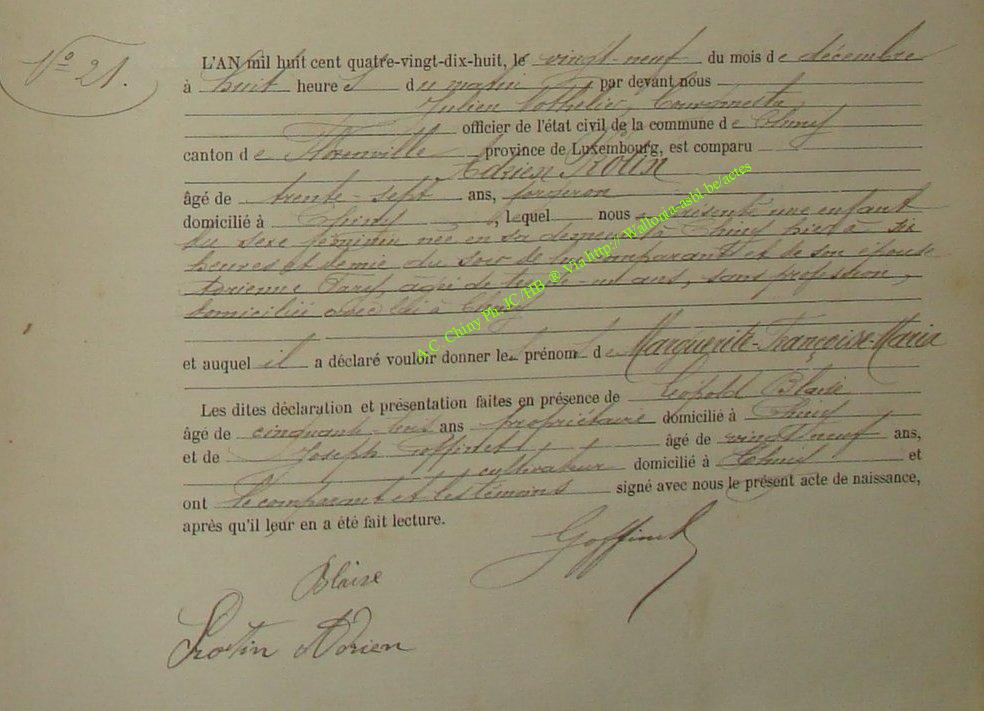 N° 21.
L'AN mil huit cent quatre-vingt-dix-huit, le vingt-neuf du mois de décembre
à huit heures du matin par devant nous
Julien Bourgmestre,
officier de l'état civil de la commune de Chiny
canton de Florenville province de Luxembourg, est comparu
Adrien Rotin
âgé de trente-sept ans, forgeron
domicilié à Chiny, lequel nous a présenté une enfant
du sexe féminin née en sa demeure à Chiny hier à six
heures et demie du soir de lui comparant et de son épouse
Dorienne âgée de trente-un ans, sans profession,
domiciliée avec lui à Chiny
et auquel il a déclaré vouloir donner les prénoms de Marguerite-Françoise-Maria
Les dites déclaration et présentation faites en présence de Léopold Blaise
âgé de cinquante-trois ans propriétaire domicilié à Chiny
et de Joseph Goffinet, âgé de vingt-neuf ans,
cultivateur domicilié à Chiny et
ont le comparant et les témoins signé avec nous le présent acte de naissance,
après qu'il leur en a été fait lecture.
Goffinet
Blaise
Rotin Adrien
A.C. Chiny Ph. JC /HB. ® Via http://Wallonia-asbl.be/actes